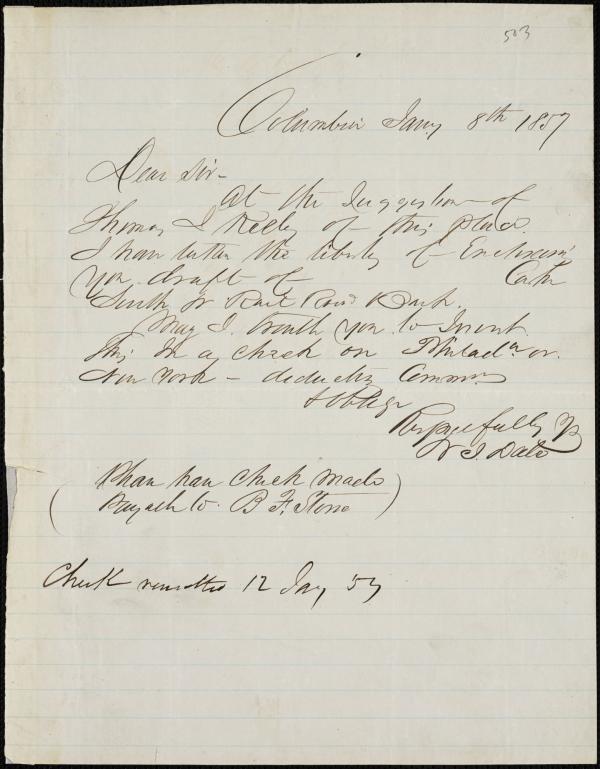 503
Columbia Jany 8th 1857
Dear Sir-
At the Suggestion of
Thomas J Kelly of this place
I have taken the liberty of Enclosing
you draft of Cashr
South W Rail Road Bank.
May I trouble you to Invest
this In a check on Philada or
New York - deducting Commns
& Oblige
Respectfully yr
W J. Dato
( Please have check made
payable to B F. Stone )
Check remitted 12 Jany 57